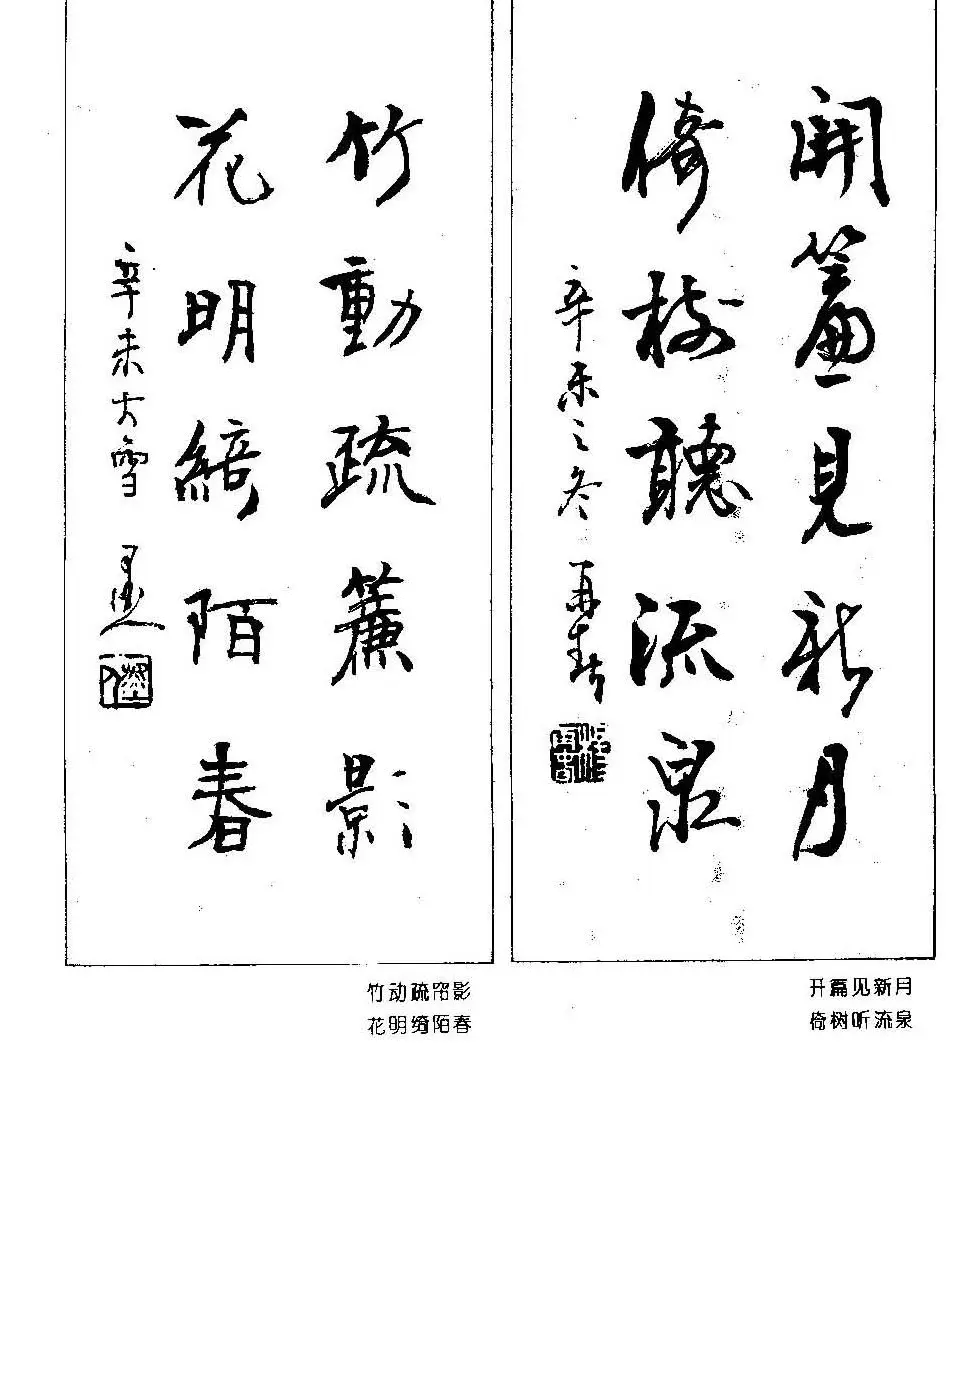 開篇見新月
倚樹聽流泉
辛未之冬
竹動疏簾影
花明綺陌春
辛未大雪
开篇见新月
倚树听流泉
竹动疏帘影
花明绮陌春